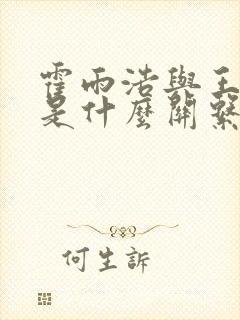 霍雨浩與王
是什麼關繫
何生訴